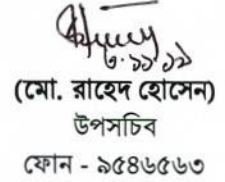 ৬.১১.১৯
(মো. রাহেদ হোসেন)
উপসচিব
ফোন - ৯৫৪৬৫৬৩